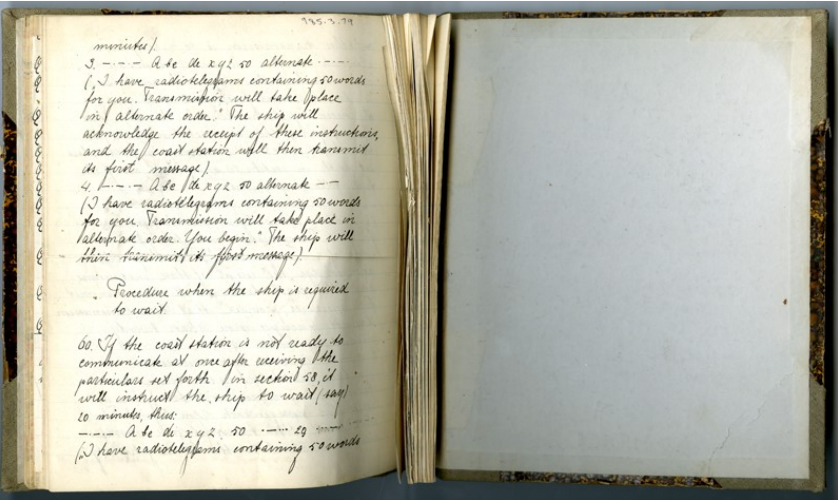 985.3.79
minutes).
3. —·—·— Abc de xyz 50 alternate
("I have radiotelegrams containing 50 words
for you. Transmission will take place
in alternate order." The ship will
acknowledge the receipt of these instructions,
and the coast station will then transmit
its first message).
4. —·—·— Abc de xyz 50 alternate
("I have radiotelegrams containing 50 words
for you. Transmission will take place in
alternate order. You begin." The ship will
then transmit its first message).
Procedure when the ship is required
to wait.
60. If the coast station is not ready to
communicate at once after receiving the
particulars set forth in section 58, it
will instruct the ship to wait (say)
20 minutes, thus:
—·—·— Abc de xyz 50
("I have radiotelegrams containing 50 words